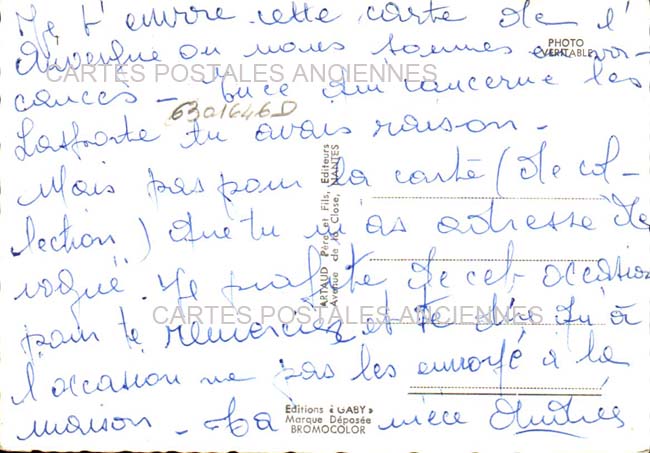 Je t'envoie cette carte de l'
Auvergne ou nous sommes en va-
cances - Pour ce qui concerne les
tu avais raison -
Mais pas pour la carte (de col-
lection) que tu m'as adressé de
Je profite de cet occasion
pour te remerciez et te dire qu'à
l'occasion ne pas les envoyé à la
maison - Ta nièce Andrée
PHOTO
VERITABLE
6301646D
CARTES POSTALES ANCIENNES
CARTES POSTALES ANCIENNES
ARTAUD Père et Fils, Editeurs
Avenue de la Close, NANTES
Editions « GABY »
Marque Déposée
BROMOCOLOR